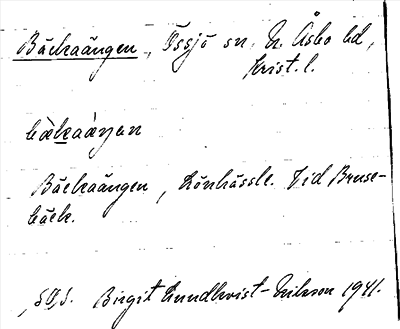 Bäckaängen, Össjö sn, N. Åsbo hd,
Krist. l.
bàkaàŋan
Bäckaängen, Lönhässle. Vid Bruse-
bäck.
Birgit Lundkvist-Nilsson 1941.